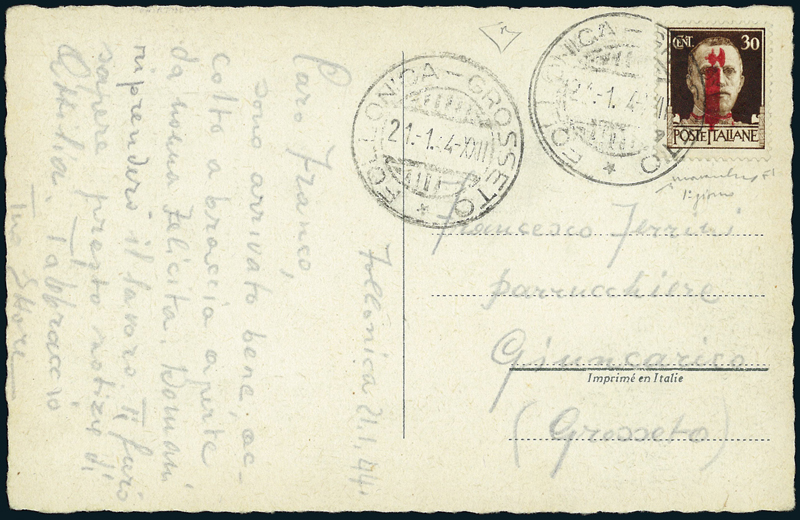 Follonica 21.1.44.
Caro Franco,
sono arrivato bene, ac-
colto a braccia aperte
da nonna Felicita. Domani
riprenderò il lavoro. Ti farò
sapere presto notizie di
Attilia. T'abbraccio
Tuo Ettore
FOLLONICA - GROSSETO
21.-1.4-XXII
FOLLONICA - GROSSETO
21.-1.4-XXII
CENT. 30
POSTE ITALIANE
1° giorno
Francesco Ferrini
parrucchiere
Giuncarico
Imprimé en Italie
(Grosseto)